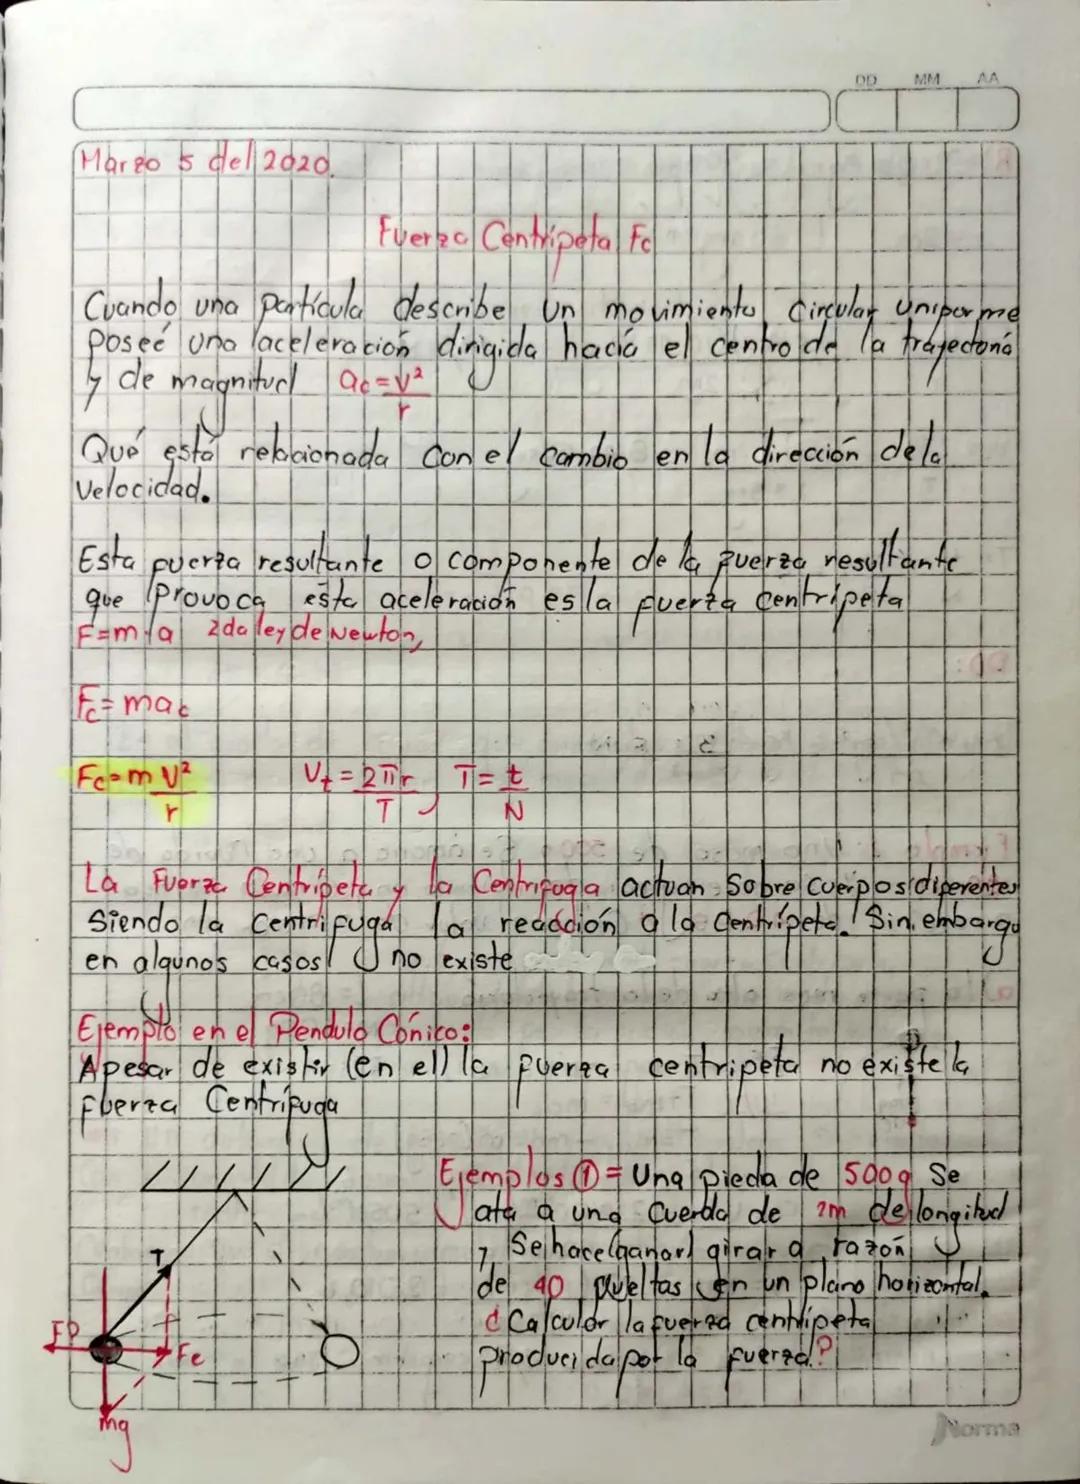 DD MM AA
Marzo 5 del 2020.
Fuerza Centrípeta Fc
Cuando una partícula describe un movimiento Circular uniforme
poseé una aceleración dirigida hacía el centro de la trayectoria
y de magnitud ac = v²/r
Qué está relacionada con el cambio en la dirección de la
Velocidad.
Esta fuerza resultante o componente de la fuerza resultante
que provoca esta aceleración es la fuerza Centrípeta
F=m.a 2da ley de Newton,
Fc= mac
Fc=m V²/r Vt = 2πr/T , T= t/N
La Fuerza Centrípeta y la Centrifuga actuan Sobre cuerpos diferentes
Siendo la Centrifuga la reacción a la Centrípeta. Sin embargo
en algunos casos no existe
Ejemplo en el Pendulo Cónico:
Apesar de existir (en el) la fuerza centripeta no existe la
fuerza Centrífuga
Ejemplos ① = Una pieda de 500g Se
ata a una Cuerda de 2m de longitud
y Se hace (ganar) girar a razón
de 40 vueltas en un plano horizontal.
Calcular la fuerza centrípeta
producida por la fuerza?
T
FP
Fc
mg
Norma